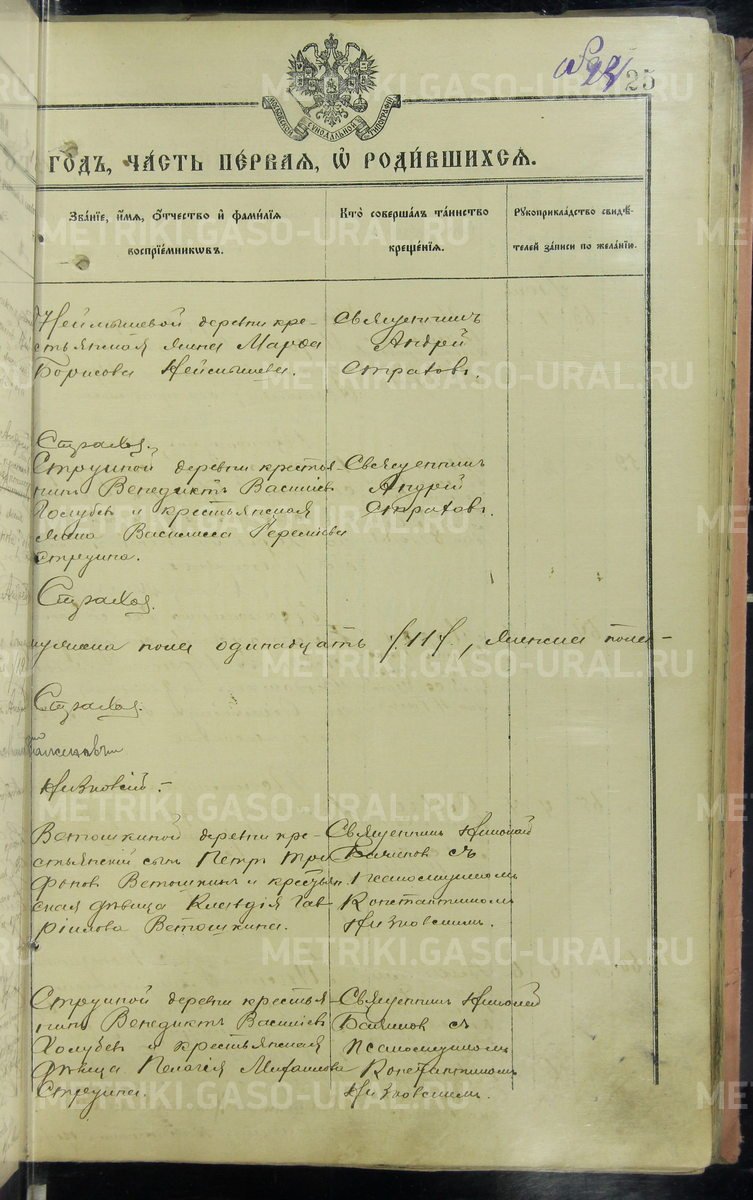 25
МОСКОВСКОЙ СѴНОДАЛЬНОЙ ТИПОГРАФІИ
ГОДЪ, ЧАСТЬ ПЕРВАЯ, Ѡ РОДИВШИХСЯ.
Званіе, имя, отчество и фамилія воспріемниковъ.
Кто совершалъ таинство крещенія.
Рукоприкладство свидѣтелей записи по желанію.
Неймышевой деревни кре-
стьянская жена Марфа
Борисова Неймышева.
Священникъ
Андрей
Стратовъ.
Струиной деревни крестья-
нинъ Венедиктъ Васильев
Голубев и крестьянская
жена Василисса
Струина.
Священникъ
Андрей
Стратовъ.
мужска пола одинадцать /11/, женска пола-
Низковскій.
Ветошкиной деревни кре-
стьянский сынъ Петр Три
фонов Ветошкинъ и крестьян.
ская дѣвица Клавдія Гав
ріилова Ветошкина.
Священникъ Николай
Баженов съ
Псаломщикомъ
Константином
Низковскимъ.
Струиной деревни крестья-
нинъ Венедиктъ Васильев
Голубев и крестьянская
дѣвица Пелагія
Струина.
Священникъ Николай
Баженов съ
Псаломщикомъ
Константином
Низковскимъ.
METRIKI.GASO-URAL.RU